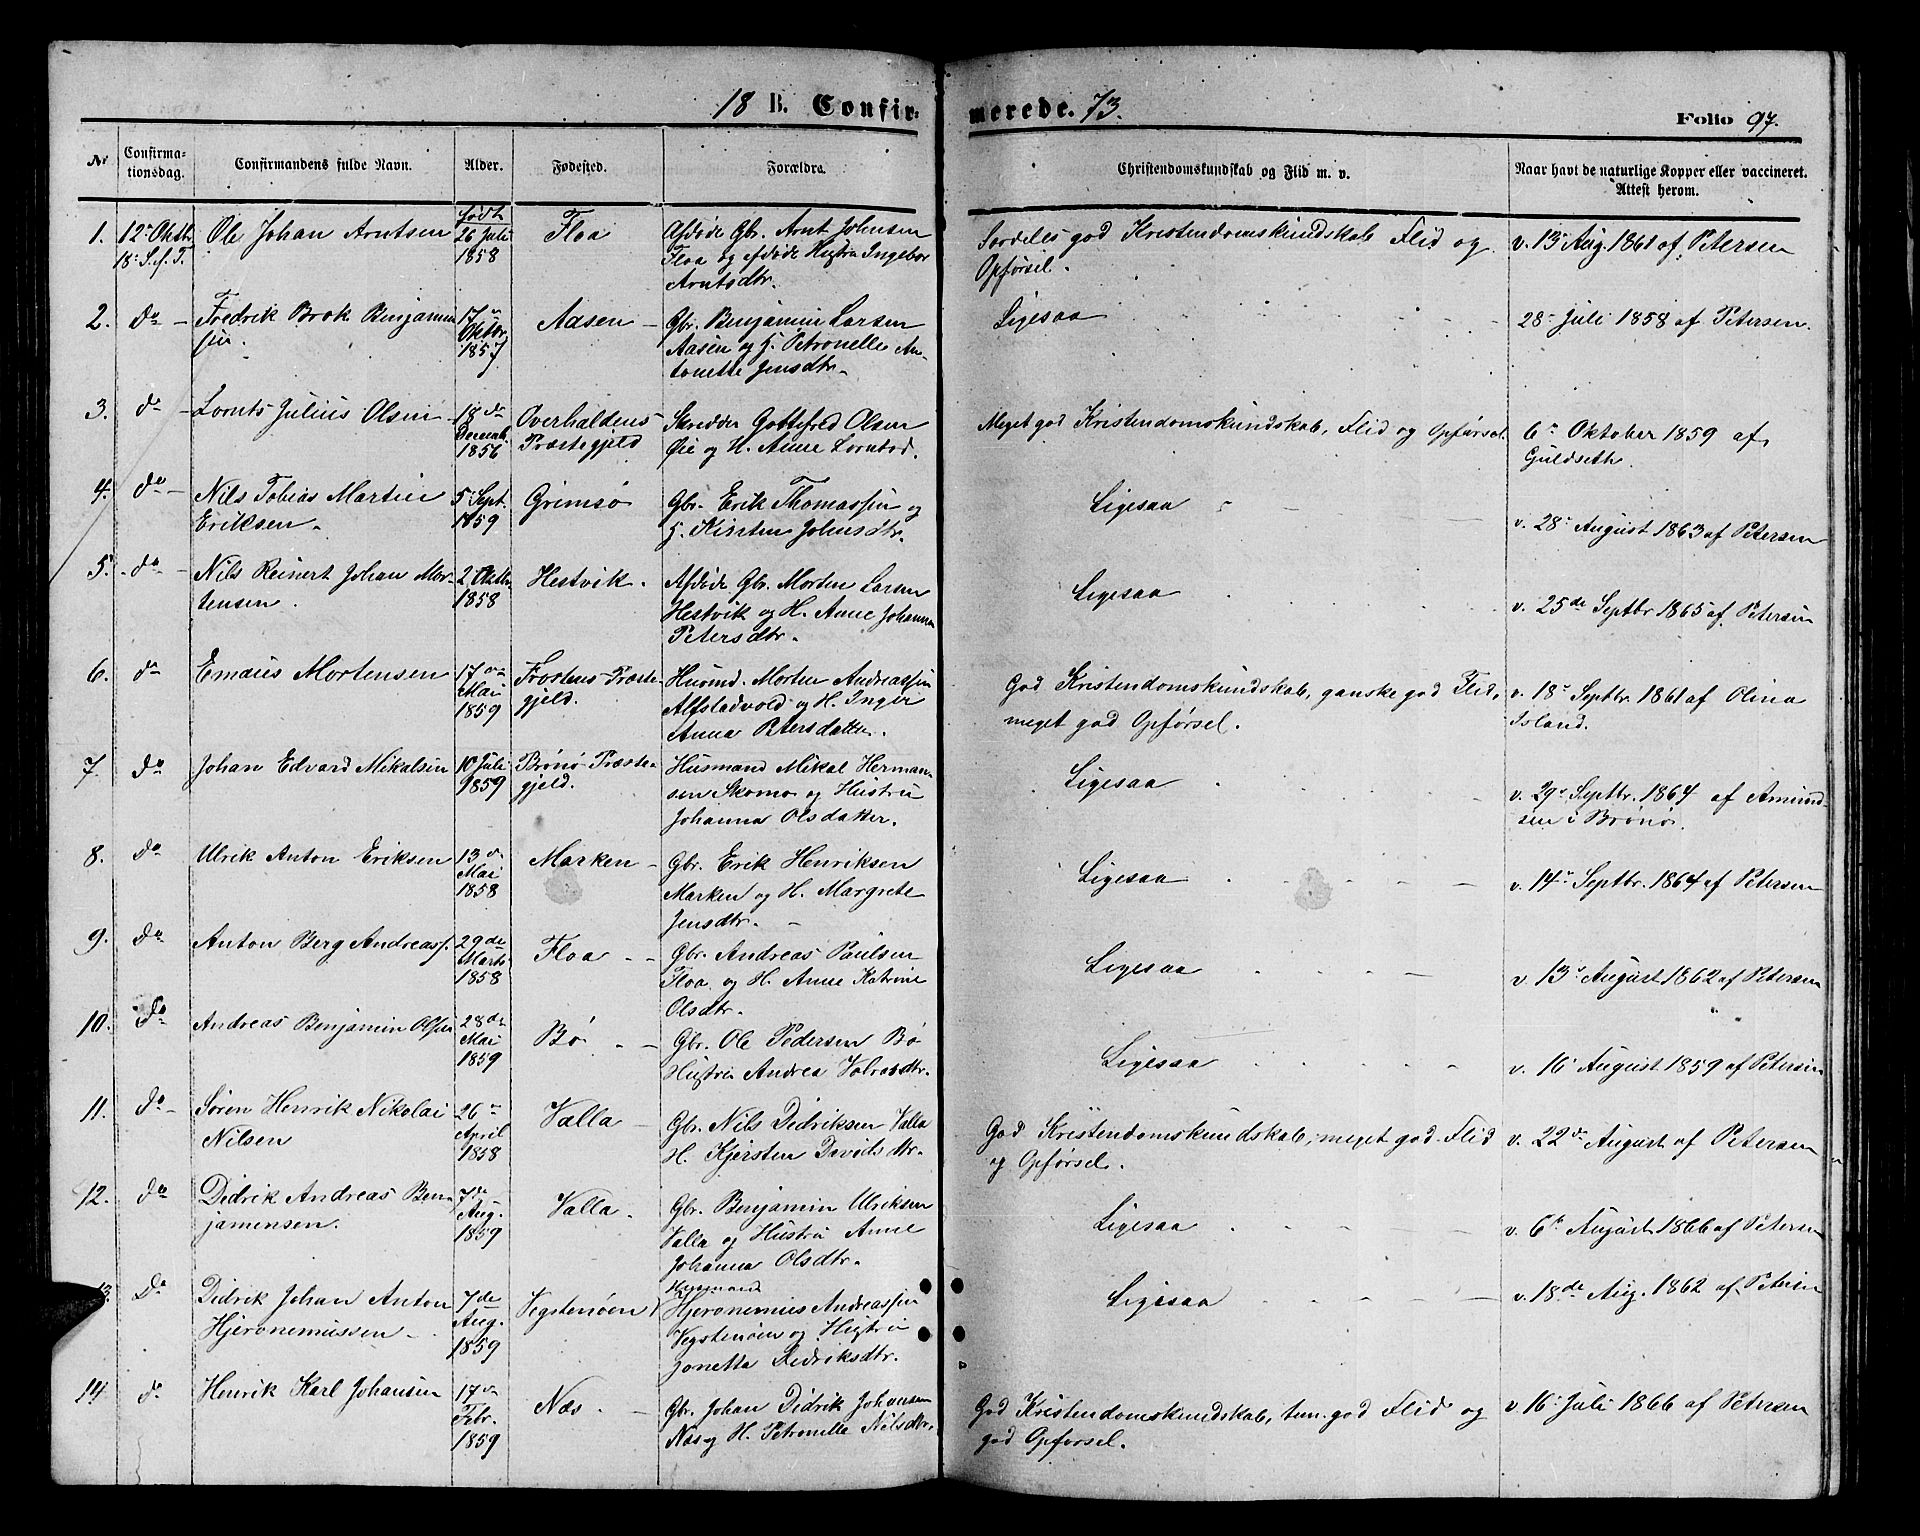 18 B. Confirmerede. 73.
Folio 97.
No
Confirmationsdag.
Confirmandens fulde Navn.
Alder.
Fødested.
Forældre.
Christendomskundskab og Flid m. v.
Naar havt de naturlige Kopper eller vaccineret.
Attest herom.
1. 12te Oktbr. Ole Johan Arntsen født 26 Juli 1858 Floa Afdøde Gbr. Arnt Johnsen
18 S. e. T. Floa og Afdøde Hustru Ingebor
Arntsdtr.
Særdeles god Kristendomskundskab Flid og v. 13 Aug. 1861 af Petersen
Opførsel.
2. do Fredrik Brok Benjamin- 17 Oktbr 1857 Aasen Gbr. Benjamin Larsen
sen. Aasen og H. Petronelle An-
tonette Jensdtr.
Ligesaa 28 Juli 1858 af Petersen.
3. do Lornts Julius Olsen 18de Decemb. 1856 Overhaldens Skrædder Gottfred Olsen
Præstegjeld Øie og H. Anne Lorntsd.
Meget god Kristendomskundskab, Flid og Opførsel. 6 Oktober 1859 af
Guldseth.
4. do Nils Tobias Martin 5 Sept. 1859 Grimsø Gbr. Erik Thomassen og
Eriksen. H. Kirsten Johnsdtr.
Ligesaa v. 28 August 1863 af Petersen
5. do Nils Reinert Johan Mor- 2 Oktbr 1858 Hestvik. Afdøde Gbr. Morten Larsen
tensen. Hestvik og H. Anne Johanna
Petersdtr.
Ligesaa v. 25de Septbr 1865 af Petersen
6. do Emaus Mortensen 17 Mai 1859 Fosnes Præste- Husmd. Morten Andreassen
gjeld. Alfstadvold og H. Inger
Anna Petersdatter.
God Kristendomskundskab, ganske god Flid, v. 18 Septbr. 1861 af Olina
meget god Opførsel. Island.
7. do Johan Edvard Mikalsen 10 Juli 1859 Brønø Præste- Husmand Mikal Herman-
gjeld. sen Skomo og Hustru
Johanna Olsdatter.
Ligesaa v. 29 Septbr. 1864 af Amund-
sen i Brønø.
8. do Ulrik Anton Eriksen 13 Mai 1858 Marken Gbr. Erik Henriksen
Marken og H. Margrete
Jensdtr.
Ligesaa v. 14 Septbr. 1864 af Petersen
9. do Anton Berg Andreass. 29de Marts 1858 Floa Gbr. Andreas Paulsen
Floa og H. Anne Katrine
Olsdtr.
Ligesaa v. 13 August 1862 af Petersen
10. do Andreas Benjamin Olsen 28de Mai 1859 Bø Gbr. Ole Pedersen Bø
Hustru Andrea
Ligesaa v. 16 August 1859 af Petersen
11. do Søren Henrik Nikolai 26 April 1858 Valla Gbr. Nils Didriksen Valla
Nilsen H. Kjersten Davidsdtr.
God Kristendomskundskab, meget god Flid v. 22de August af Petersen
og Opførsel.
12. do Didrik Andreas Ben- 7de Aug. 1859 Valla. Gbr. Benjamin Ulriksen
jamensen. Valla og Hustru Anne
Johanna Olsdtr.
Ligesaa v. 6te August 1866 af Petersen
13. do Didrik Johan Anton 7de Aug. 1859 Vegstenøen Husmand
Hjeronemussen Hjeronemus Andreassen
Vegstenøen og Hustru
Jonetta Didriksdtr.
Ligesaa v. 18de Aug. 1862 af Petersen
14. do Henrik Karl Johansen 17 Febr. 1859 Næs. Gbr. Johan Didrik Johansen
Næs og H. Petronella Nilsdtr.
God Kristendomskundskab, tem. god Flid og v. 16 Juli 1866 af Petersen
god Opførsel.